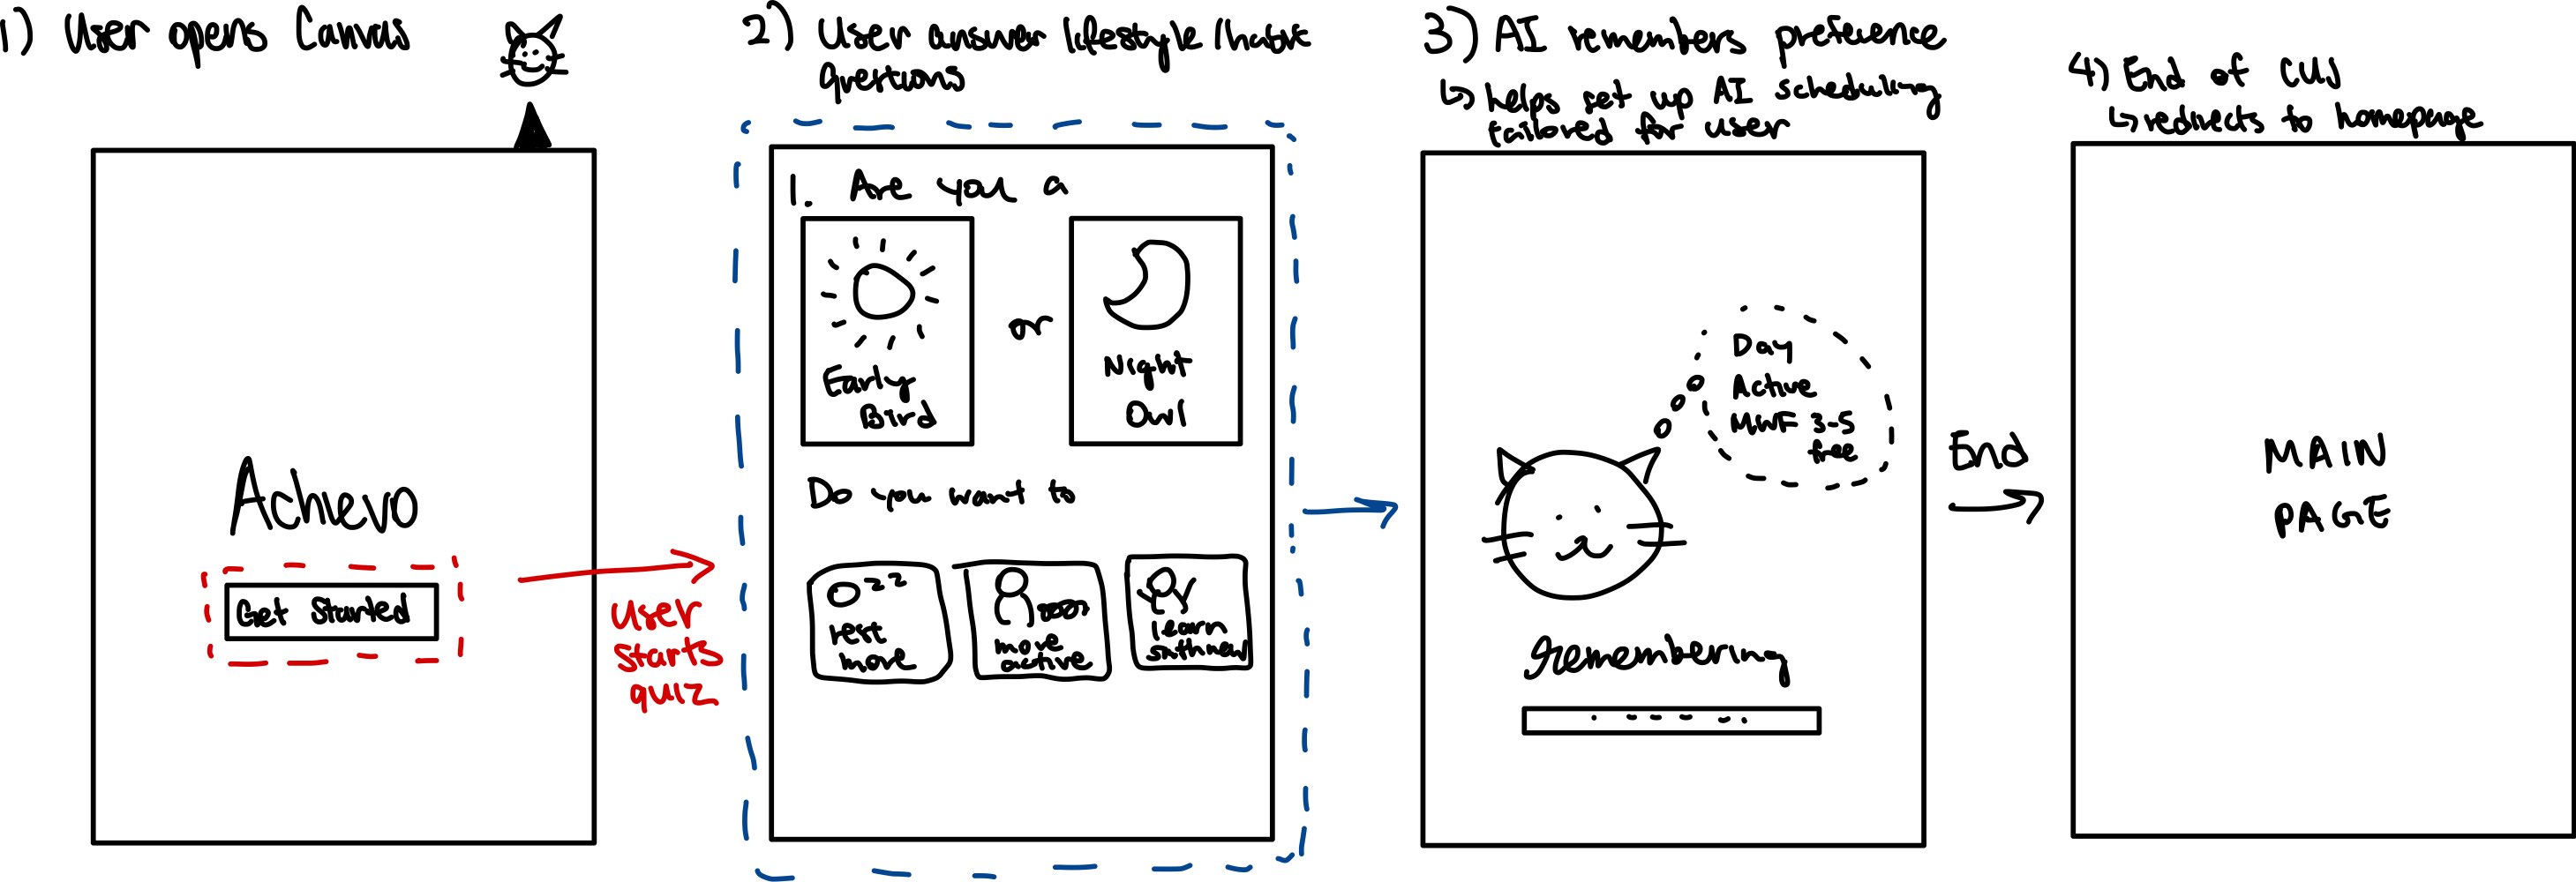 1) User opens Canvas
Achievo
Get Started
User
starts
quiz
2) User answer lifestyle /
questions
1. Are you a
Early
Bird
or
Night
Owl
Do you want to
zz
rest
more
move
active
learn
smth new
3) AI remembers preference
↳ helps set up AI scheduling
tailored for user
Day
Active
MWF 3-5
free
Remembering
End
4) End of CUJ
↳ redirects to homepage
MAIN
PAGE